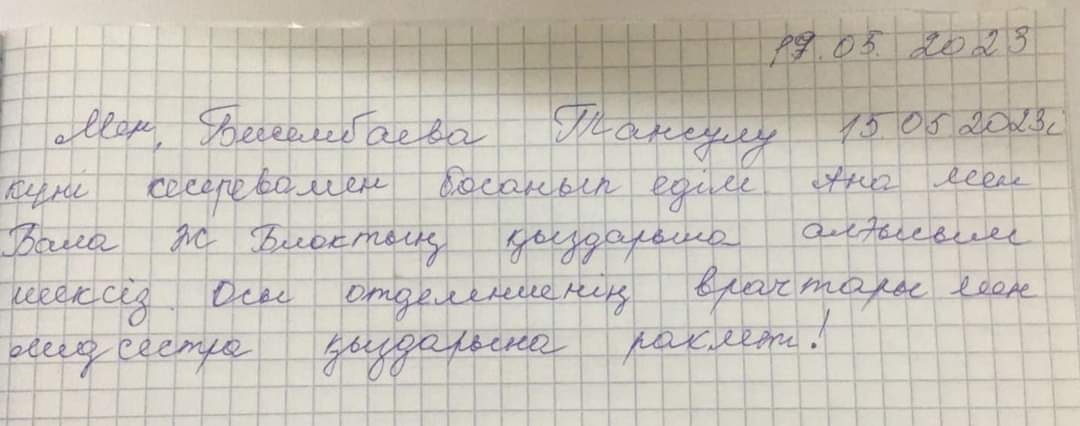 19.05.2023
Мен, Бисембаева Тансулу 15.05.2023г
күні кесеревамен босанып едім Ана мен
Бала Ж Блоктың қыздарына алғысым
шексіз. Осы отделениенің врачтары мен
медсестра қыздарына рахмет!